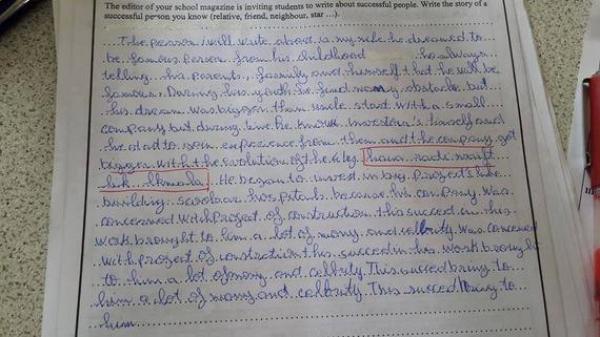 The editor of your school magazine is inviting students to write about successful people. Write the story of a
successful person you know (relative, friend, neighbour, star ...).
The person I will write about is my he dreamed to
be famous person from his childhood he always
telling his parents, family and himself that he will be
famous, During his youth he find many obstacls but
his dream was bigger than uncle start with a small
company but during time he known investora's himself and
he start to son experience from them and the company get
bigger with the evolution of the
He began to invest in big project's like
building because his company was
concerned with project of construction this succed in this
work brought to him a lot of mony and celbruty was concerned
with project of construction this succed in his work brought
to him a lot of mony and celbruty This succed bring to
him a lot of mony and celbruty This succed bring to
him